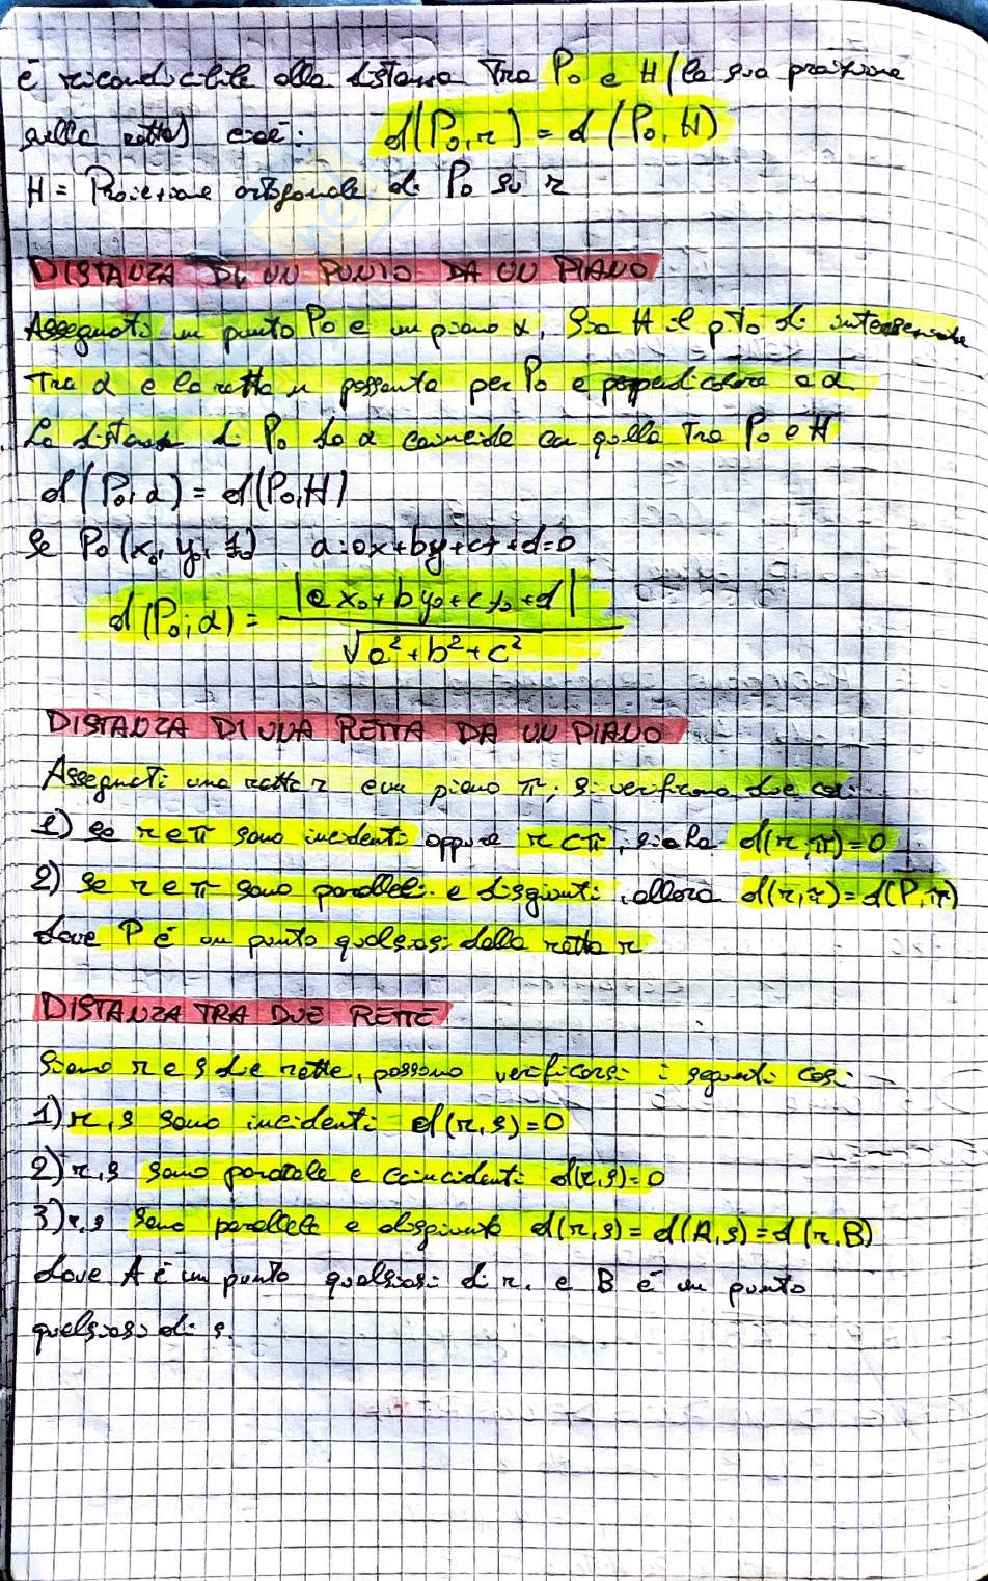 è riconducibile alla distanza tra P₀ e H (la sua proiezione
sulla retta) cioè: d(P₀,r) = d(P₀,H)
H = Proiezione ortogonale di P₀ su r
DISTANZA DI UN PUNTO DA UN PIANO
Assegnati un punto P₀ e un piano α, sia H il pto di intersezione
tra α e la retta n passante per P₀ e perpendicolare a α
La distanza di P₀ da α coincide con quella tra P₀ e H
d(P₀,α) = d(P₀,H)
Se P₀(x₀, y₀, z₀) α:ax+by+cz+d=0
d(P₀;α) = |ax₀+by₀+cz₀+d| / √a²+b²+c²
DISTANZA DI UNA RETTA DA UN PIANO
Assegnati una retta r e un piano π, si verificano due casi:
1) se r e π sono incidenti oppure r⊂π, si ha d(r,π)=0
2) se r e π sono paralleli e disgiunti, allora d(r,π)=d(P,π)
dove P è un punto qualsiasi della retta r
DISTANZA TRA DUE RETTE
Siano r e s due rette, possono verificarsi i seguenti casi:
1) r,s sono incidenti d(r,s)=0
2) r,s sono parallele e coincidenti d(r,s)=0
3) r,s sono parallele e disgiunte d(r,s)=d(A,s)=d(r,B)
dove A è un punto qualsiasi di r. e B è un punto
qualsiasi di s.